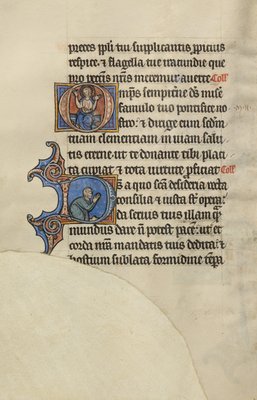 preces ppl̃i tui suplicantis ꝓpicius
respice: et flagella tue iracundie que
pro pecc̃is nr̃is meremur auerte. Coll̃
Omp̃s sempit̃ne dṡ mise
famulo tuo pontifice no
stro: et dirige eum scd̃m
tuam clementiam in uiam salu
tis eterne ut te donante tibi placi
ta cupiat et tota uirtute ꝑficiat Coll̃
Ds̃ a quo sc̃a desideria recta
consilia et iusta st̃ opera:
da seruis tuis illam qm̃
mundus dare ñ potest pacem: ut et
corda nr̃a mandatis tuis dedita: et
hostium sublata formidine tp̃a